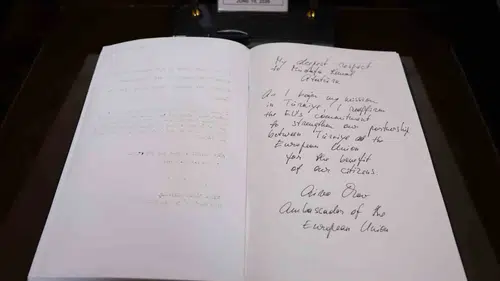 JUNE
My deepest respect
to Mustafa Kemal
Atatürk
As I begin my mission
in Türkiye, I reaffirm
the EU's commitment
to strengthen our partnership
between Türkiye and the
European Union
for the benefit
of our citizens
Aivo Orav
Ambassador of the
European Union